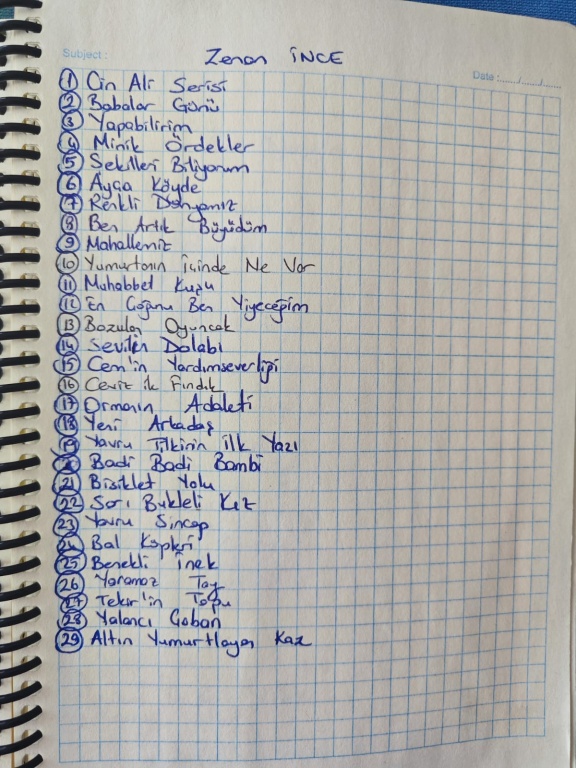 Subject :
Zenan İNCE
Date :....../....../......
1 Cin Ali Serisi
2 Babalar Günü
3 Yapabilirim
4 Minik Ördekler
5 Şekilleri Biliyorum
6 Ayça Köyde
7 Renkli Dünyamız
8 Ben Artık Büyüdüm
9 Mahallemiz
10 Yumurtanın İçinde Ne Var
11 Muhabbet Kuşu
12 En Çoğunu Ben Yiyeceğim
13 Bozulan Oyuncak
14 Sevilin Dolabı
15 Cem'in Yardımseverliği
16 Ceviz ile Fındık
17 Ormanın Adaleti
18 Yeni Arkadaş
19 Yavru Tilkinin İlk Yazı
20 Badi Badi Bambi
21 Bisiklet Yolu
22 Sarı Bukleli Kız
23 Yavru Sincap
24 Bal Küpleri
25 Benekli İnek
26 Yaramaz Tay
27 Tekir'in Topu
28 Yalancı Çoban
29 Altın Yumurtlayan Kaz